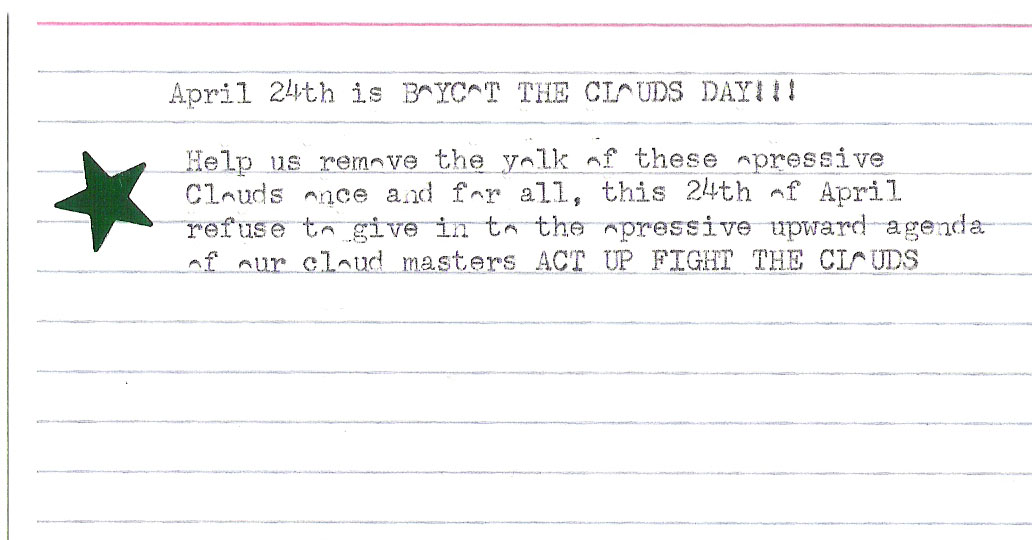 April 24th is B^YC^T THE CL^UDS DAY!!!
Help us rem^ve the y^lk ^f these ^pressive
Cl^uds ^nce and f^r all, this 24th ^f April
refuse t^ give in t^ the ^pressive upward agenda
^f ^ur cl^ud masters ACT UP FIGHT THE CL^UDS